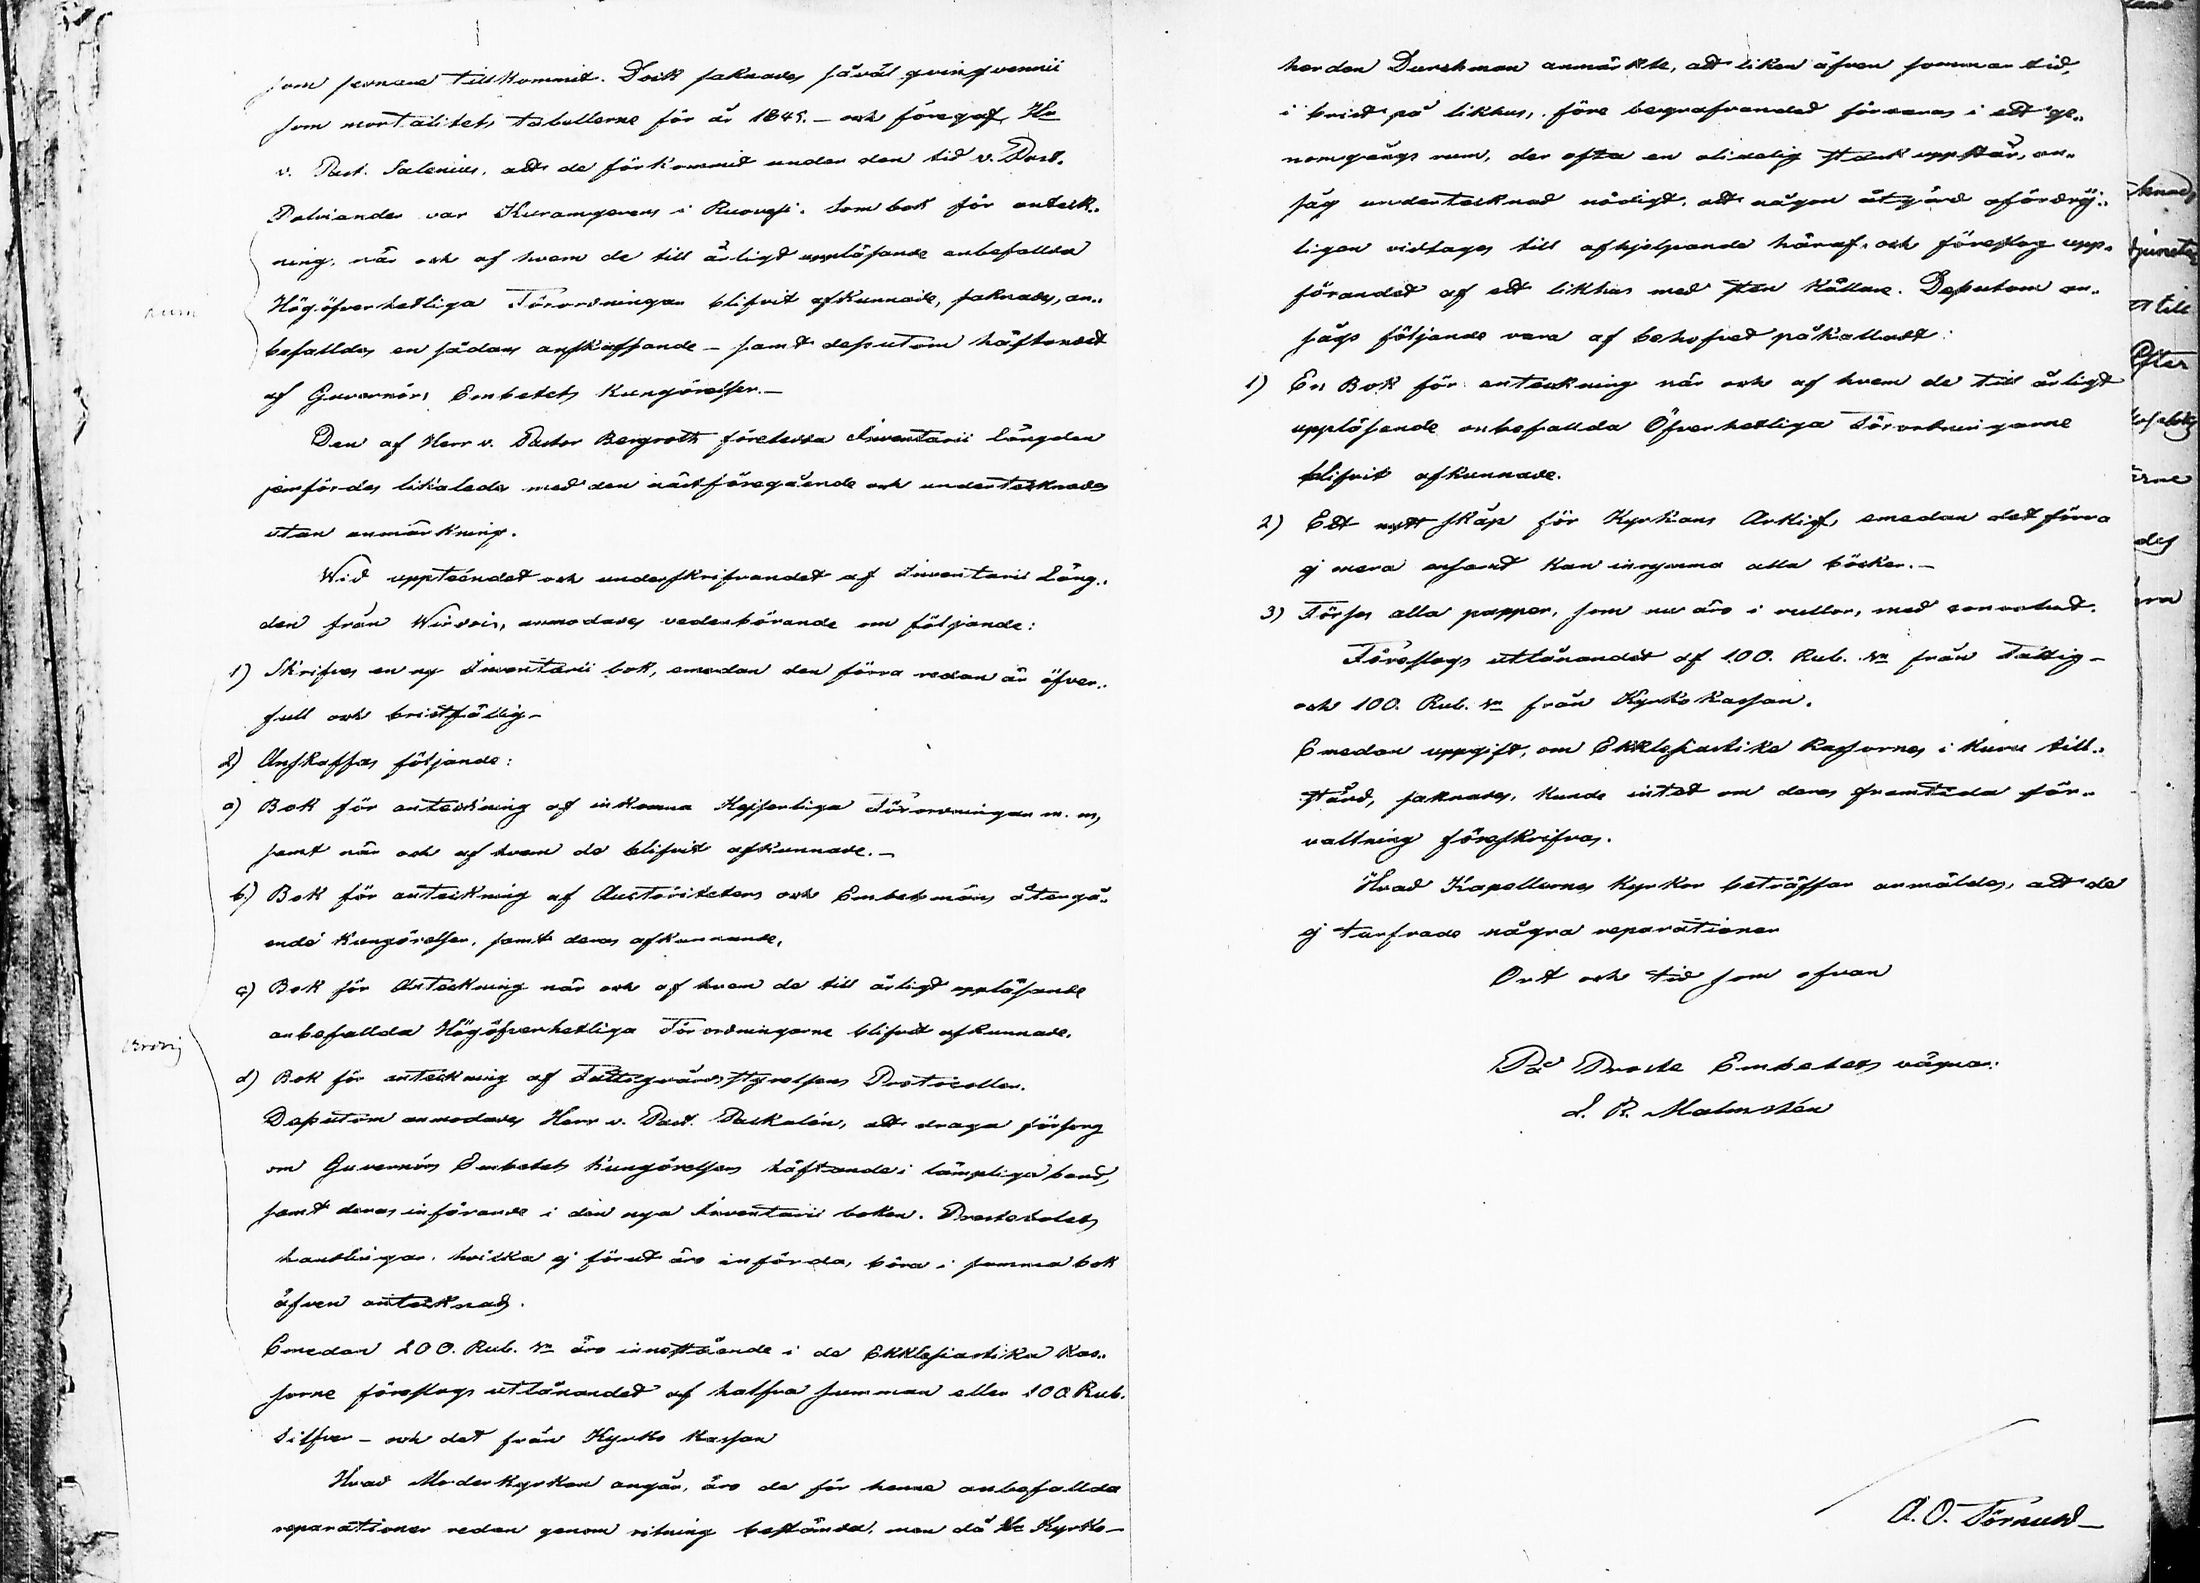 som sednare tillkommit. Dock saknades såväl qvinqvennii
som mortalitets tabellerne för år 1845. – och föregaf Hr
v. Past. Salenius, att de förkommit under den tid v. Past.
Polviander var Kuramgerens i Ruovesi. Som bok för anteck„
ning, när och af hvem de till årligt uppläsande anbefallda
Högöfverhetliga Förordningar blifvit afkunnade, saknades, an„
befalldes en sådans anskaffande – samt dessutom häftandet
af Guvernörs Embetets Kungörelser. –
Den af Herr v. Pastor Bergroth företedda Inventarii längden
jemfördes likaledes med den nästföregående och undertecknades
utan anmärkning.
Wid uppteendet och underskrifvandet af Inventarii Läng„
den från Wirdois, anmodades vederbörande om följande:
1) Skrifves en ny Inventarii bok, emedan den förra redan är öfver„
full och bristfällig –
2) Anskaffas följande:
a) Bok för anteckning af inkomna Kejserliga Förordningar m. m,
samt när och af hvem de blifvit afkunnade. –
b) Bok för anteckning af Auctoriteters och Embetsmäns återgå„
ende Kungörelser, samt deras afkunnande,
c) Bok för Anteckning när och af hvem de till årligt uppläsande
anbefallda Högöfverhetliga Förordningarne blifvit afkunnade.
d) Bok för anteckning af Fattigvårds styrelsens Protocoller.
Dessutom anmodades Herr v. Past. Packalén, att draga försorg
om Guvernörs Embetets Kungörelsers häftande i lämpliga band,
samt deras införande i den nya Inventarii boken. Prostebolets
handlingar, hvilka ej förut äro införda, böra i samma bok
äfven antecknas.
Emedan 200. Rub. Sr äro innestående i de Ekklesiastika Kas„
sorne föreslogs utlånandet af halfva summan eller 100 Rub.
Silfver – och det från Kyrko Kassan
Hvad Moderkyrkan angår, äro de för henne anbefallda
reparationer redan genom ritning bestämda, men då Hr Kyrko–
Kuru
Virdois
herden Durchman anmärkte, att liken äfven sommar tid,
i brist på likhus, före begrafvandet förvaras i ett ge„
nomgångs rum, der ofta en olidelig stank uppstår, an„
såg undertecknad nödigt, att någon åtgärd ofördröj„
ligen vidtages till afhjelpande häraf, och föreslog upp„
förandet af ett likhus med sten källare. Dessutom an„
sågs följande vara af behofvet påkalladt:
1) En Bok för anteckning när och af hvem de till årligt
uppläsande anbefallda Öfverhetliga Förordningarne
blifvit afkunnade.
2) Ett nytt skåp för Kyrkans Arkif, emedan det förra
ej mera ensamt kan inrymma alla böcker. –
3) Förses alla papper, som nu äro i rullor, med convolut.
Föreslogs utlånandet af 100. Rub. Sr från Fattig –
och 100. Rub. Sr från Kyrko kassan.
Emedan uppgift, om Ekklesiastike Kassornes i Kuru till„
stånd, saknades, kunde intet om deras framtida för„
valtning föreskrifvas.
Hvad Kapellernes Kyrkor beträffar anmäldes, att de
ej tarfvade några reparationer
Ort och tid som ofvan
På Proste Embetets vägnar:
L. R. Malmstén
A. O. Törnudd